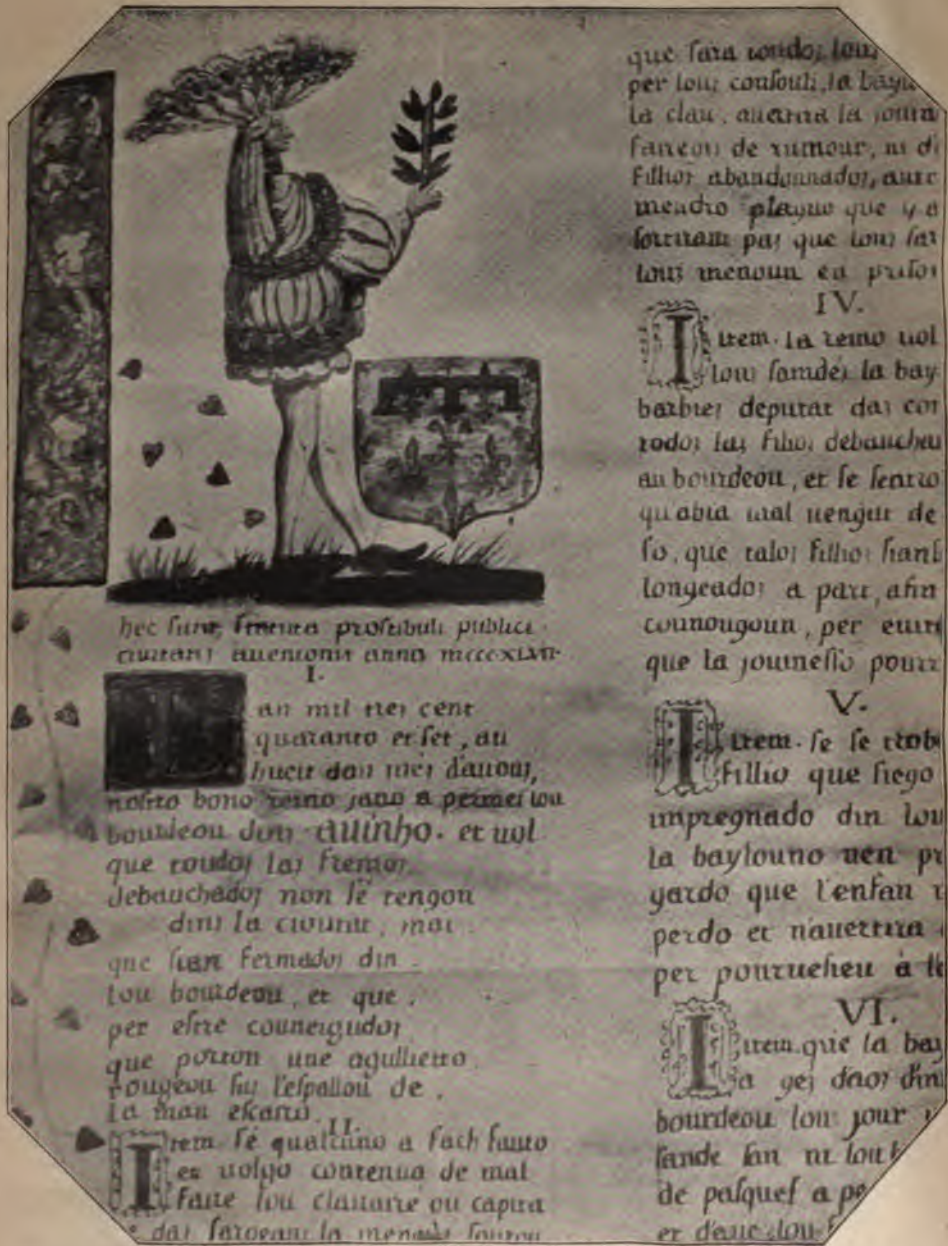 hec sunt statuta prostibuli publici
civitatis avenionis anno mcccxlvii
I.
an mil tres cent
quaranto et set, au
hueit dou mes d'avous,
nostro bono reino jano a permes lou
bourdeou dins avinho. et vol
que toudos las fremos
debauchados non se tengon
dins la ciouta, mai
que sian fermados din
lou bourdeou, et que.
per estre couneigudos
que porton une agullietto
rougeou su l'espallou de
la man escairo.
II
Item. sé qualcuno a fach fauto
es volgo contenua de mal
faire lou clavaire ou capita
das sargeans la menado soutou
que sara toudos lous
per lous consouls, la bayl
la clau, avertira la
de rumour, ni d
fillios abandounados, autr
mendro plagno que y a
sortiram pas que lous
lous menoun en priso
IV.
Item. la reino vol
lou samdés la bay
barbier deputat das con
todos las filios debaucheu
au bourdeou, et se sen
qu'abia mal vengut de
so, que talos filhos sian
longeados a part, afin
counougoun, per evit
que la jouinesso pourr
V.
Item. se se trob
fillio que siego
impregnado din lou
la baylouno ven pr
gardo que l'enfan
perdo et n'avertira
per pourveheu à l
VI.
Item. que la bay
a ges daos din
bourdeou lou jour
sande san ni lou
de pasques
et deue lou